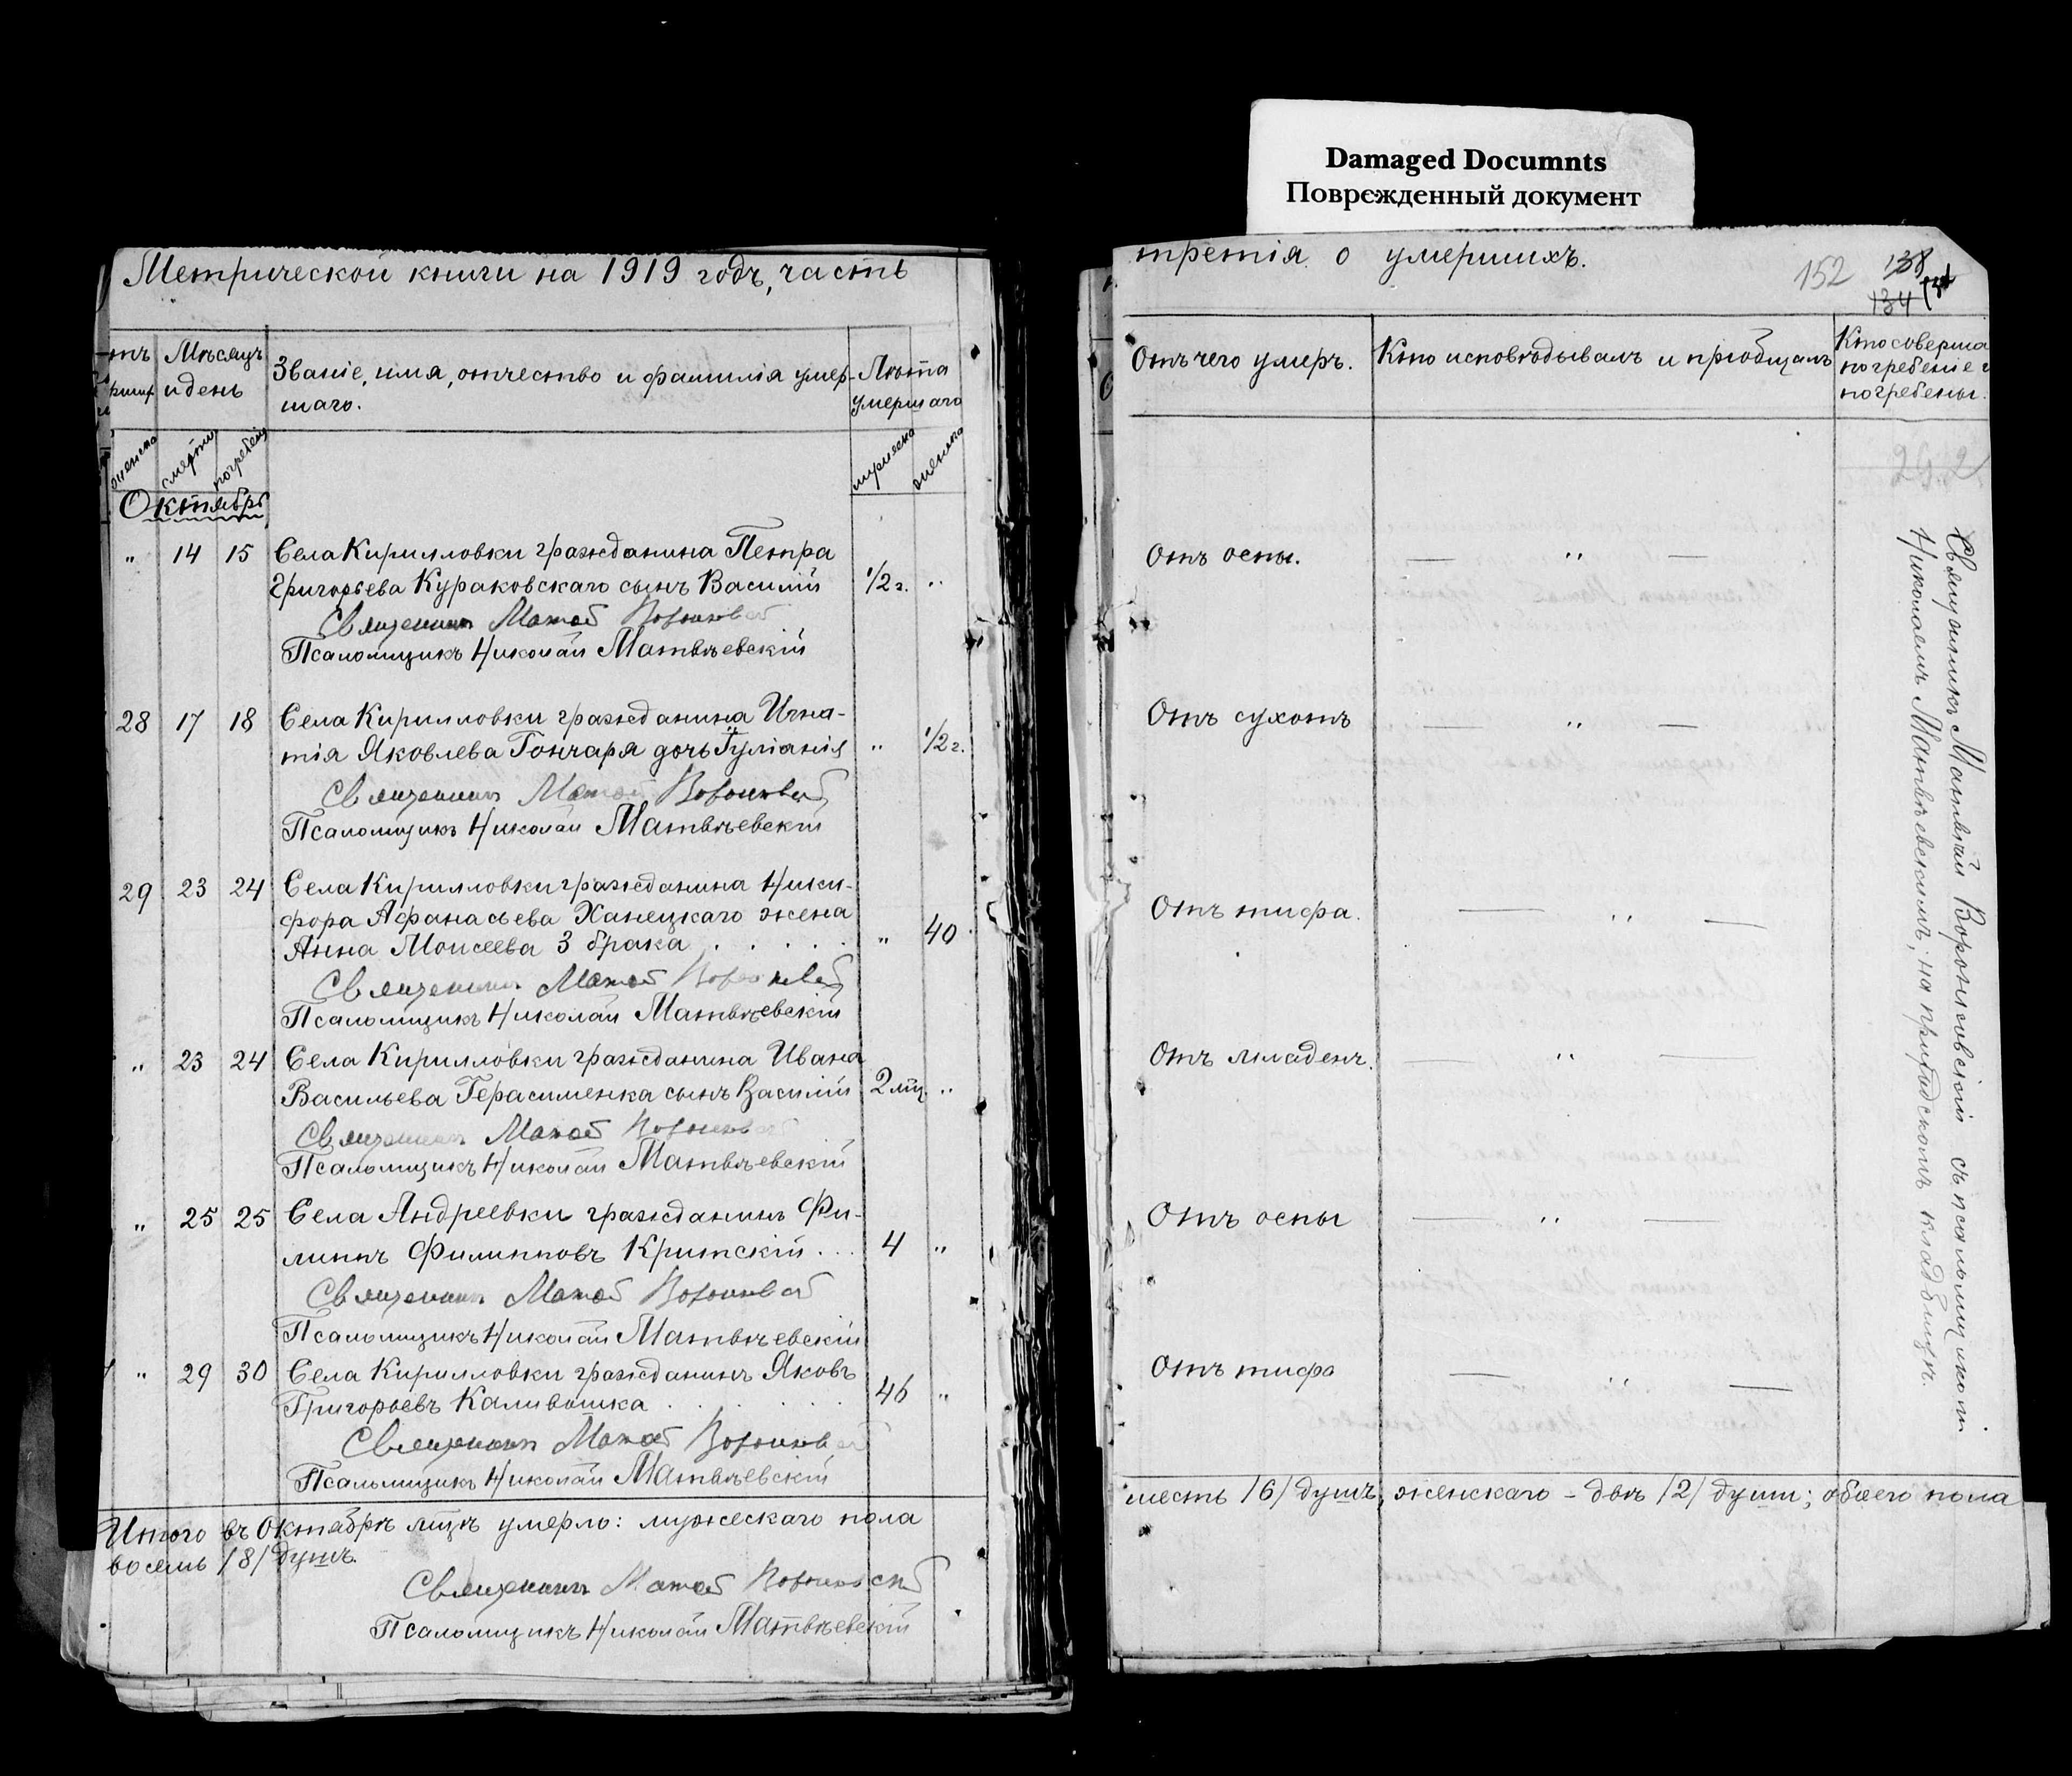 Damaged Documnts
Поврежденный документ
Метрической книги на 1919 годъ, часть
Мѣсяцъ
и день
Званіе, имя, отчество и фамилія умер-
шаго.
Лѣта
умершаго
женска
смерти
погребенія
мужеска
женска
Октябрь
" 14 15 Села Кирилловки гражданина Петра
Григорьева Кураковскаго сынъ Василій 1/2 г. "
Священникъ Матѳей
Псаломщикъ Николай Матвѣевскій
28 17 18 Села Кирилловки гражданина Игна-
тія Яковлева Гончаря дочь Іуліанія " 1/2 г.
Священникъ
Псаломщикъ Николай Матвѣевскій
29 23 24 Села Кирилловки гражданина Ники-
фора Афанасьева Ханецкаго жена
Анна Моисеева 3 брака . . . . . " 40
Священникъ
Псаломщикъ Николай Матвѣевскій
" 23 24 Села Кирилловки гражданина Ивана
Васильева Герасименка сынъ Василій 2 мц. "
Священникъ
Псаломщикъ Николай Матвѣевскій
" 25 25 Села Андреевки гражданинъ Фи-
липпъ Филипповъ Критскій . . . 4 "
Священникъ
Псаломщикъ Николай Матвѣевскій
" 29 30 Села Кирилловки гражданинъ Яковъ
Григорьевъ Каливошка . . . . . . 46 "
Священникъ
Псаломщикъ Николай Матвѣевскій
Итого въ Октябрѣ мцѣ умерло: мужескаго пола
восемь /8/ душъ.
Священникъ
Псаломщикъ Николай Матвѣевскій
третія о умершихъ.
152
138
134
Отъ чего умеръ.
Кто исповѣдывалъ и пріобщалъ
Кто соверша
погребеніе
погребены.
Отъ оспы. — " —
Отъ сухотъ — " —
Отъ тифа. — " —
Отъ младенч. — " —
Отъ оспы — " —
Отъ тифа — " —
Священникъ Матвѣй Воронковскій съ псаломщикомъ
Николаемъ Матвѣевскимъ, на приходскомъ кладбищѣ.
шесть /6/ душъ, женскаго - двѣ /2/ души; обоего пола